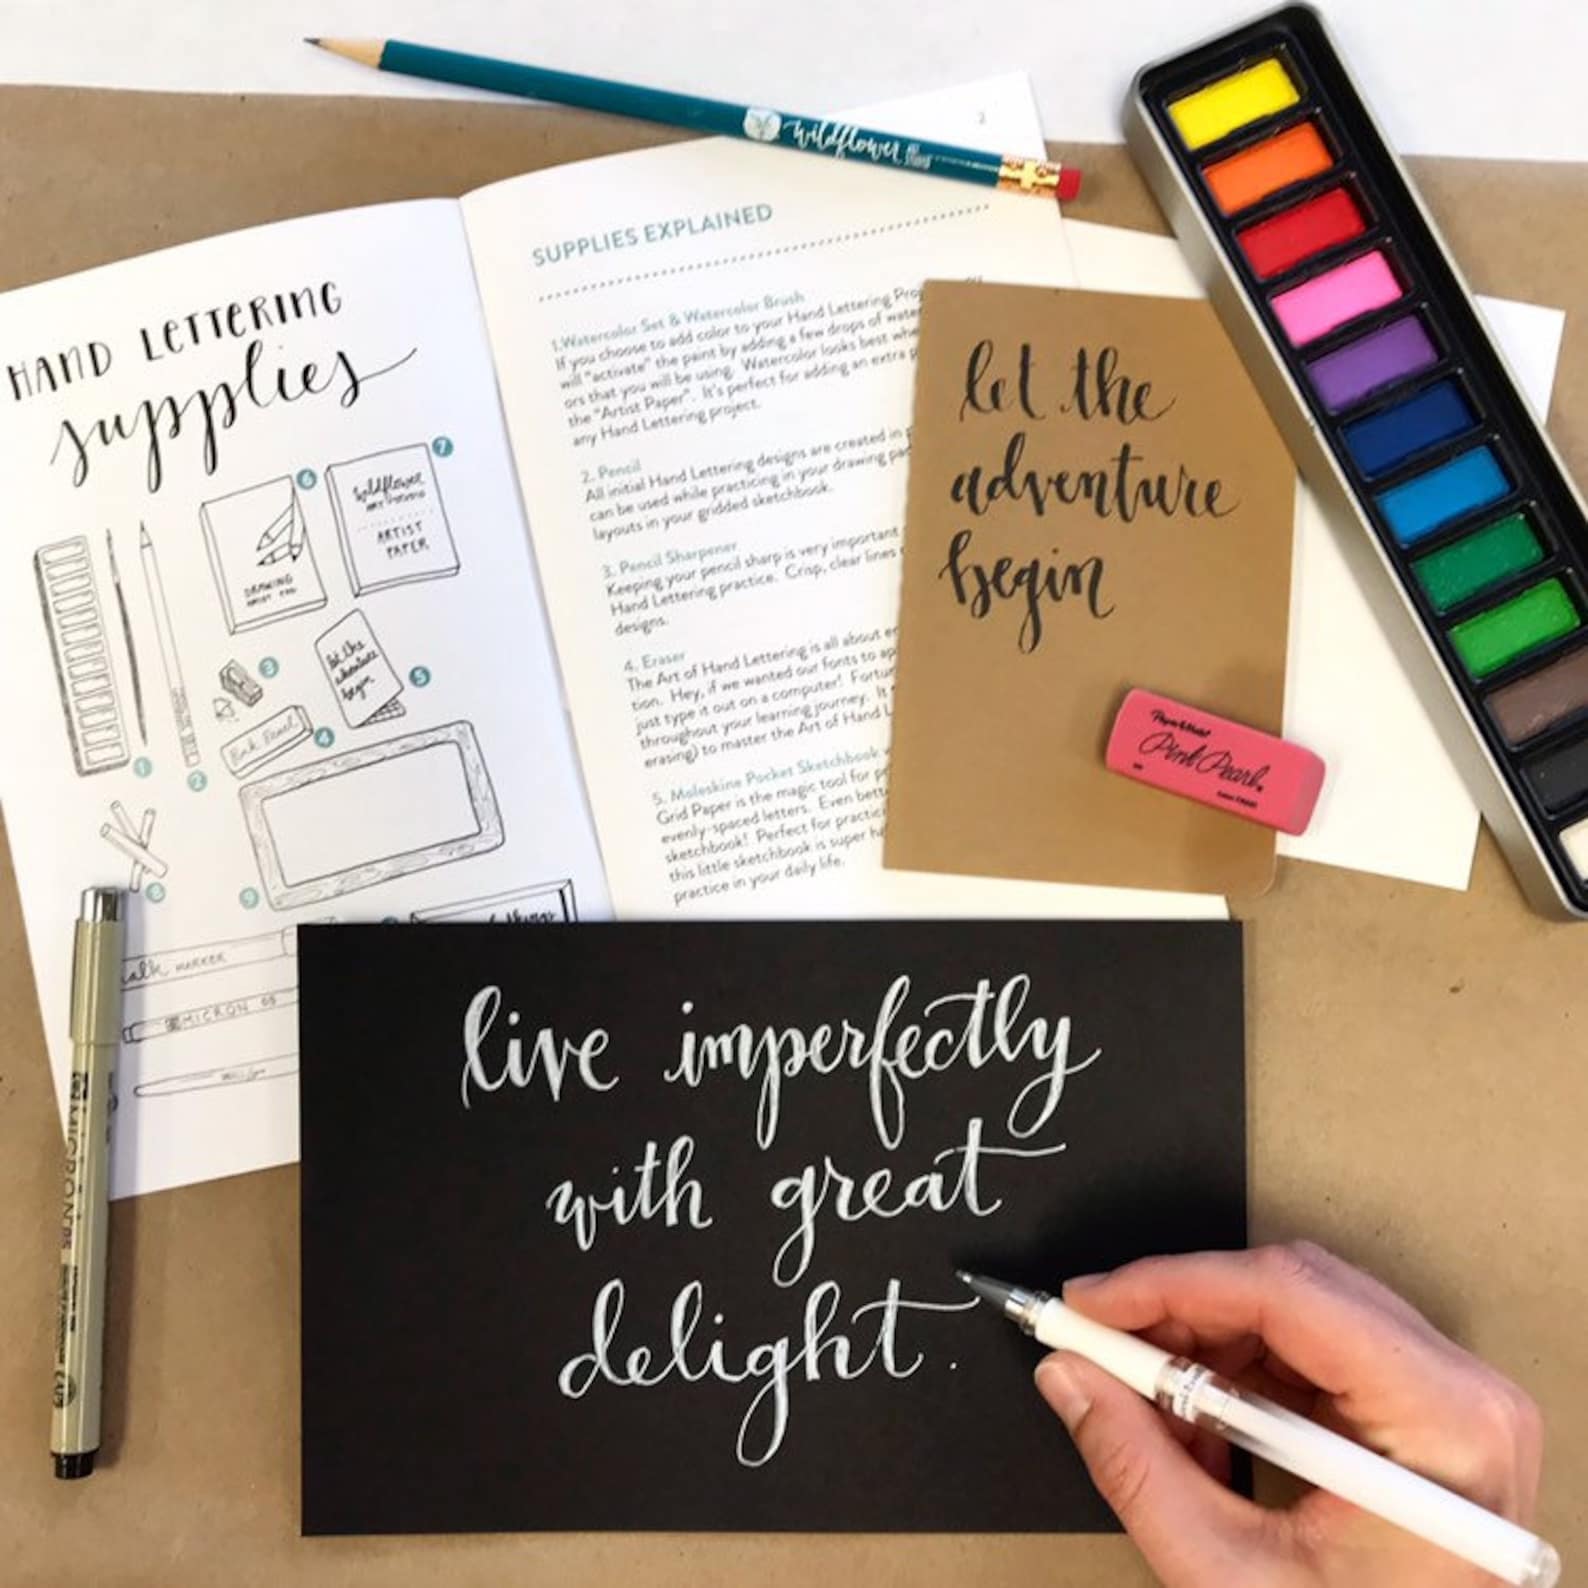 wildflower
2
HAND LETTERING
supplies
7
6
wildflower
ART STUDIO
ARTIST
PAPER
DRAWING
3
let the
adventure
begin
5
4
Pink Pearl
1
2
8
9
things
MARKER
MICRON 05
SUPPLIES EXPLAINED
1. Watercolor Set & Watercolor Brush
If you choose to add color to your Hand Lettering
will "activate" the paint by adding a few drops of
ors that you will be using. Watercolor looks best
the "Artist Paper". It's perfect for adding an extra
any Hand Lettering project.
2. Pencil
All initial Hand Lettering designs are created in
can be used while practicing in your drawing
layouts in your gridded sketchbook.
3. Pencil Sharpener
Keeping your pencil sharp is very important
Hand Lettering practice. Crisp, clear lines
designs.
4. Eraser
The Art of Hand Lettering is all about
tion. Hey, if we wanted our fonts to
just type it out on a computer!
throughout your learning journey. It
erasing) to master the Art of Hand
5. Moleskine Pocket Sketchbook
Grid Paper is the magic tool for
evenly-spaced letters. Even
sketchbook! Perfect for
this little sketchbook is super
practice in your daily life.
let the
adventure
begin
Paper Mate
Pink Pearl
MICRON 05
live imperfectly
with great
delight.